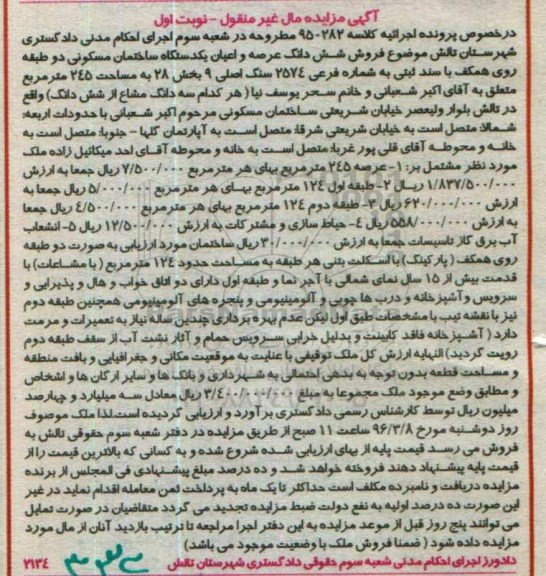 آگهی مزایده مال غیر منقول - نوبت اول
درخصوص پرونده اجرائیه کلاسه 950282 مطروحه در شعبه سوم اجرای احکام مدنی دادگستری
شهرستان تالش موضوع فروش شش دانگ عرصه و اعیان یکدستگاه ساختمان مسکونی دو طبقه
روی همکف با سند ثبتی به شماره فرعی 2574 سنگ اصلی 9 بخش 28 به مساحت 245 مترمربع
متعلق به آقای اکبر شعبانی و خانم سحر یوسف نیا ( هر کدام سه دانگ مشاع از شش دانگ) واقع
در تالش بلوار ولیعصر خیابان شریعتی ساختمان مسکونی مرحوم اکبر شعبانی با حدودات اربعه:
شمالا: متصل است به خیابان شریعتی شرقا: متصل است به آپارتمان گلها - جنوبا: متصل است به
خانه و محوطه آقای قلی پور غربا: متصل است به خانه و محوطه آقای احد میکائیل زاده ملک
مورد نظر مشتمل بر: 1-عرصه 245 مترمربع بهای هر مترمربع 7/500/000 ریال جمعا به ارزش
1/837/500/000 ریال 2- طبقه اول 124 مترمربع بهای هر مترمربع 5/000/000 ریال جمعا به
ارزش 620/000/000 ریال 3- طبقه دوم 124 مترمربع بهای هر مترمربع 4/500/000 ریال جمعا
به ارزش 558/000/000 ریال 4- حیاط سازی و مشترکات به ارزش 12/500/000 ریال 5- انشعاب
آب برق گاز تاسیسات جمعا به ارزش 30/000/000 ریال ساختمان مورد ارزیابی به صورت دو طبقه
روی همکف ( پارکینگ) با اسکلت بتنی هر طبقه به مساحت حدود 124 مترمربع ( با مشاعات) با
قدمت بیش از 15 سال نمای شمالی با آجر نما و طبقه اول دارای دو اتاق خواب و هال و پذیرایی و
سرویس و آشپزخانه و درب ها چوبی و آلومینیومی و پنجره های آلومینیومی همچنین طبقه دوم
نیز با نقشه تیپ با مشخصات طبق اول لیکن عدم بهره برداری چندین ساله نیاز به تعمیرات و مرمت
دارد ( آشپزخانه فاقد کابینت و بدلیل خرابی سرویس حمام و آثار نشت آب از سقف طبقه دوم
رویت گردید) النهایه ارزش کل ملک توقیفی با عنایت به موقعیت مکانی و جغرافیایی و بافت منطقه
و مساحت قطعه بدون توجه به بدهی احتمالی به شهرداری و بانک ها و سایر ارکان ها و اشخاص
و مطابق وضع موجود ملک مجموعا به مبلغ ریال معادل سه میلیارد و چهارصد
میلیون ریال توسط کارشناس رسمی دادگستری برآورد و ارزیابی گردیده است.لذا ملک موصوف
روز دوشنبه مورخ 96/3/8 ساعت 11 صبح از طریق مزایده در دفتر شعبه سوم حقوقی تالش به
فروش می رسد قیمت پایه از بهای ارزیابی شده شروع شده و به کسانی که بالاترین قیمت را از
قیمت پایه پیشنهاد دهند فروخته خواهد شد و ده درصد مبلغ پیشنهادی فی المجلس از برنده
مزایده دریافت و نامبرده مکلف است حداکثر تا یک ماه به پرداخت ثمن معامله اقدام نماید در غیر
این صورت ده درصد اولیه به نفع دولت ضبط مزایده تجدید می گردد متقاضیان در صورت تمایل
می توانند پنج روز قبل از موعد مزایده به این دفتر اجرا مراجعه تا ترتیب بازدید آنان از مال مورد
مزایده داده شود ( ضمنا فروش ملک با وضعیت موجود می باشد)
دادورز اجرای احکام مدنی شعبه سوم حقوقی دادگستری شهرستان تالش 2134